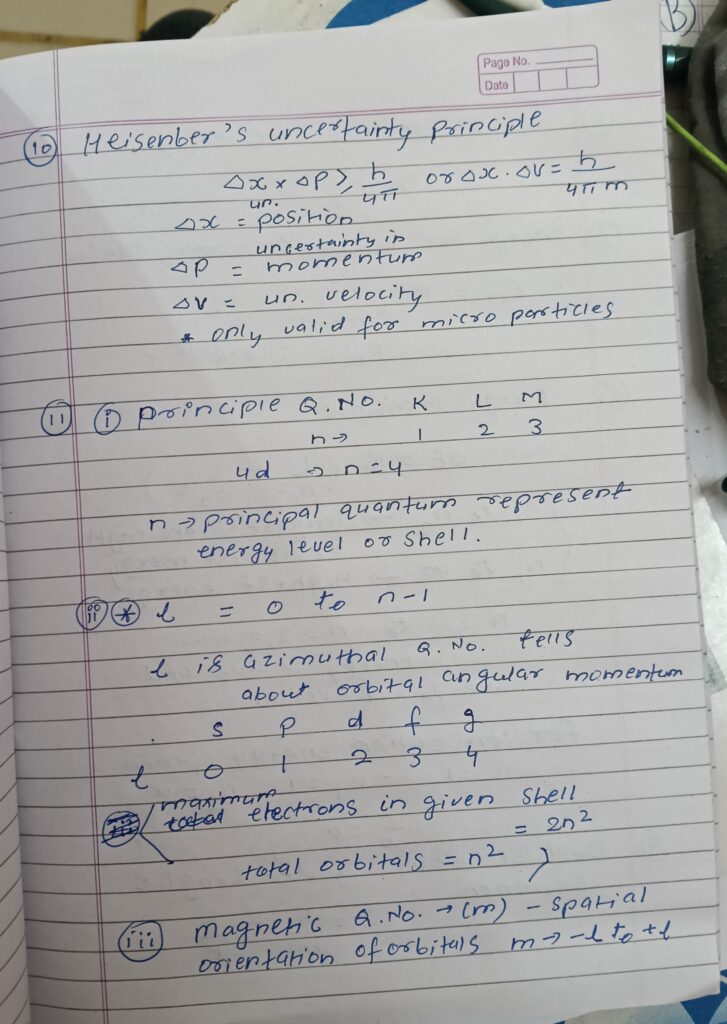 B
Page No.
Date
10 Heisenber's uncertainty principle
Δx x Δp ≥ h/4π or Δx . Δv = h/4πm
Δx = un. position
Δp = uncertainty in momentum
Δv = un. velocity
* only valid for micro particles
11 i principle Q.No. K L M
n → 1 2 3
4d → n = 4
n → principal quantum represent
energy level or shell.
ii * l = 0 to n-1
l is azimuthal Q.No. tells
about orbital angular momentum
s p d f g
l 0 1 2 3 4
maximum electrons in given shell
= 2n²
total orbitals = n²
iii magnetic Q.No. → (m) - spatial
orientation of orbitals m → -l to +l